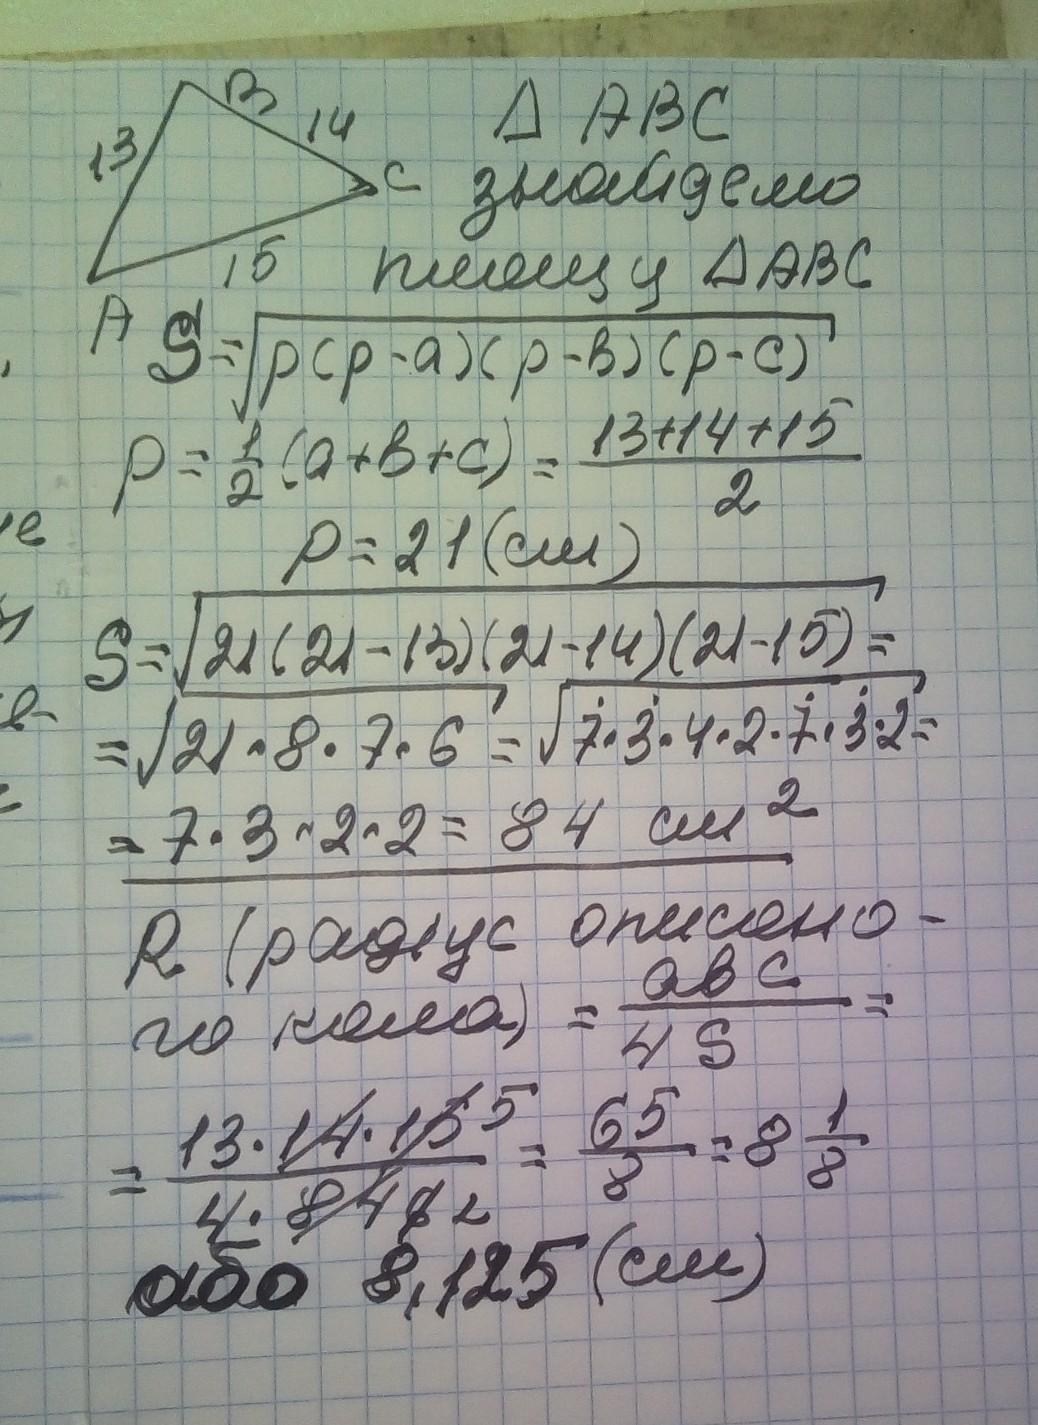 В
13
14
С
15
А
Δ АВС
знайдемо
площу ΔАВС
S=√p(p-a)(p-в)(p-c)
p=1/2(a+в+c)=13+14+15/2
p=21(см)
S=√21(21-13)(21-14)(21-15)=
=√21·8·7·6=√7·3·4·2·7·3·2=
=7·3·2·2=84 см²
R (радіус описано-
го кола)=aвc/4S=
=13·14·15 5/4·84 6 2=65/8=8 1/8
або 8,125(см)